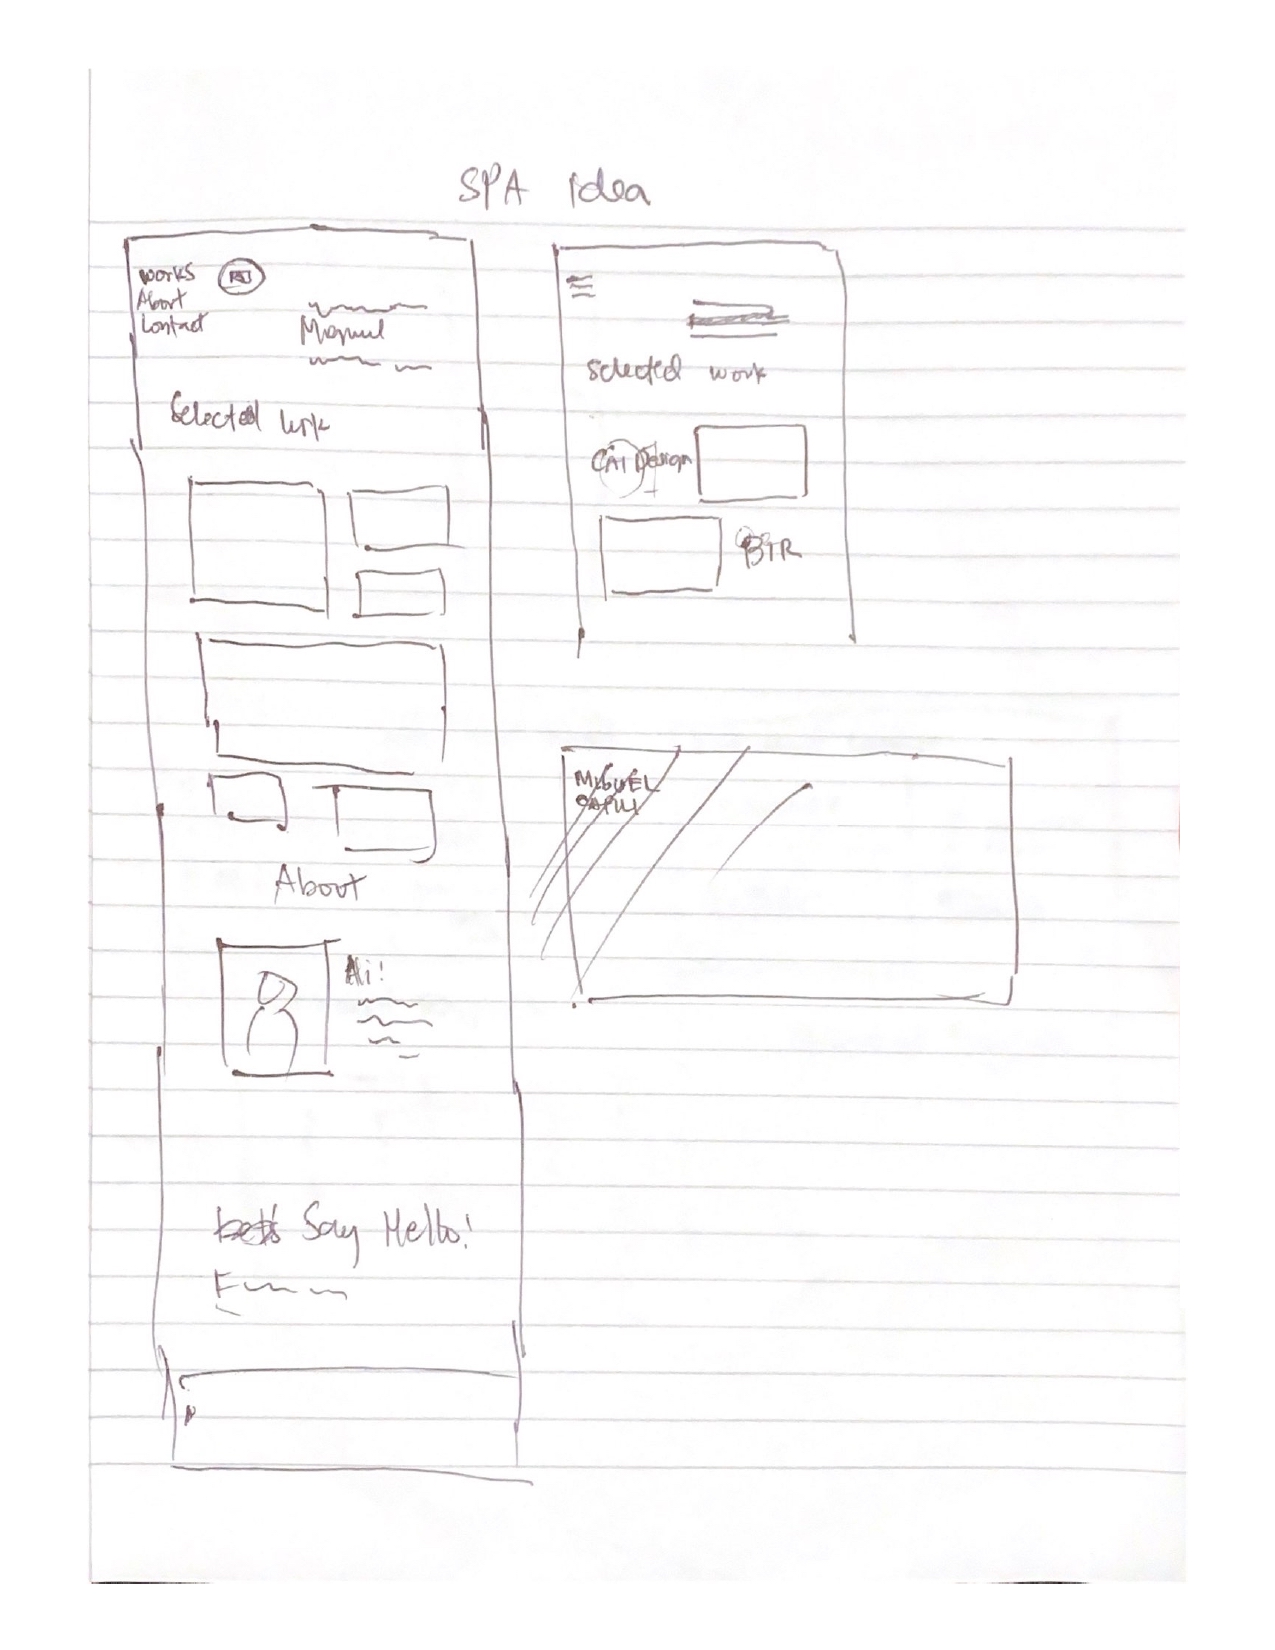 SPA idea
works
About
Contact
Selected work
About
Hi!
Say Hello!
selected work
CAI Design
BTR
MIGUEL
CAPILI